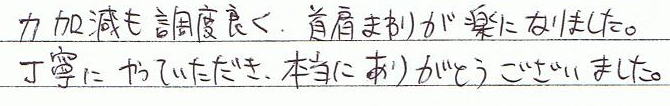 力加減も調度良く、首肩まわりが楽になりました。
丁寧にやっていただき、本当にありがとうございました。